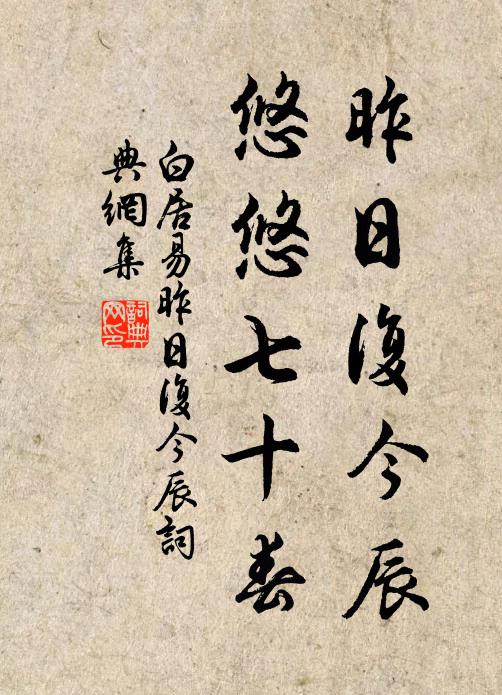 昨日復今辰
悠悠七十春
白居易昨日復今辰詞
典網集
詞典
网印